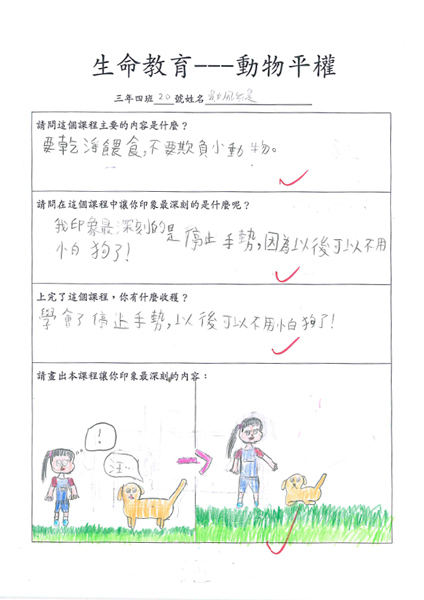 生命教育---動物平權
三年四班20號姓名
請問這個課程主要的內容是什麼?
要乾淨餵食,不要欺負小動物。
請問在這個課程中讓你印象最深刻的是什麼呢?
我印象最深刻的是停止手勢,因為以後可以不用
怕狗了!
上完了這個課程,你有什麼收穫?
學會了停止手勢,以後可以不用怕狗了!
請畫出本課程讓你印象最深刻的內容:
!
汪..